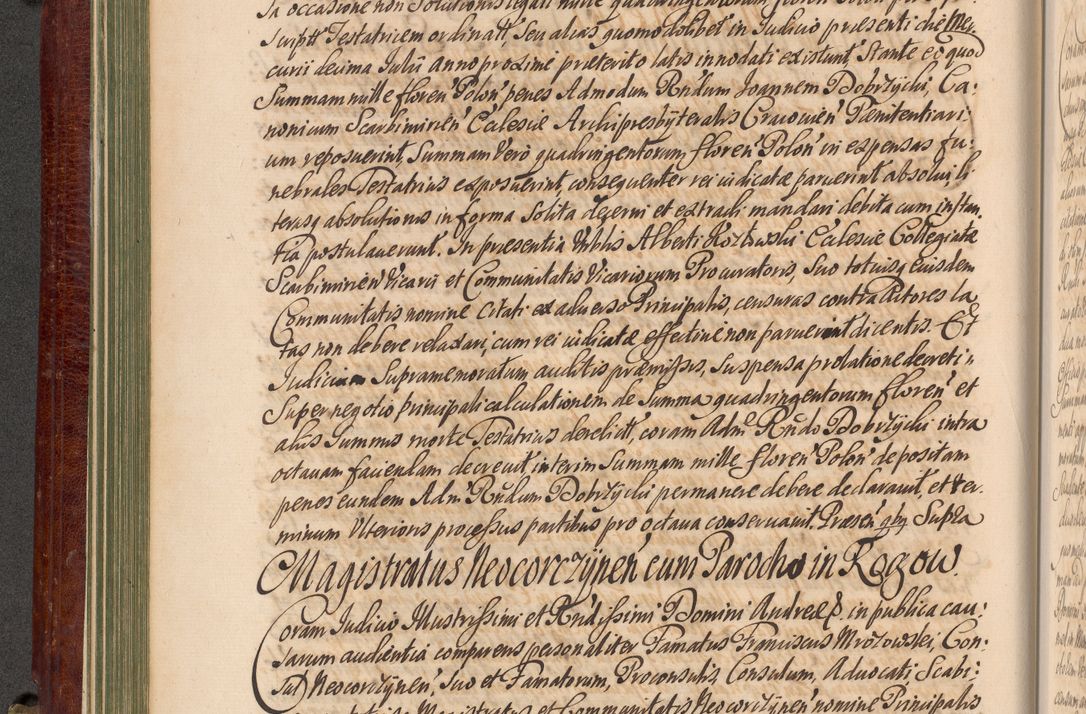 In occasione non Solutionis legati mille quadringentorum floren Polon per
scriptt Testatricem ordinatt, Seu alias quomodolibet in Iudicio præsenti die Mer:
curii decima Iulii Anno proxime præterito latis innodati existunt, Stante eo quod
Summam mille floren' Polon' penes Admodum Rndum Joannem Dobrzycki, Ca:
nonicum Scarbimirien' Ecclesiæ Archipresbyteralis Cracovien' Pænitentiari:
um reposuerint, Summam Vero quadringentorum floren' Polon' in expensas fu:
nebrales Testatricis exposuerint, consequenter rei iudicatæ paruerint absolvi, li
terasq absolutionis in forma Solita decerni et extradi mandari debita cum instan
tia postulaverunt. In præsentia Vrblis Alberti Kozłowski Ecclesiæ Collegiatæ
Scarbimirien' Vicarii et Communitatis Vicariorum Procuratoris, Suo totiusq eiusdem
Communitatis nomine Citati ex adverso Principalis, censuras contra Actores la
tas non debere relaxari, cum rei iudicatæ effective non paruerint dicentis. Et
Iudicium Supramemoratum auditis præmissis, Suspensa prolatione decreti
Super negotio principali calculationem de Summa quadringentorum floren' et
aliis Summis morte Testatricis derelictt, coram Adm Rndo Dobrzycki intra
octavam faciendam decrevit, interim Summam mille floren' Polon' depositam
penes eundem Adm' Rndum Dobrzycki permanere debere declaravit, et ter:
minum Ulterioris processus partibus pro octava conservavit. Præsen' qbq Supra
Magistratus Neocorczÿnen' cum Parocho in Rogow.
Coram Iudicio Illustrissimi et Rndissimi Domini Andreæ in publica cau:
sarum audientia comparens personaliter Famatus Franciscus Mrozowski, Con:
sul Neocorczÿnen', Suo et Famatorum, Proconsulis, Consulum, Advocati, Scabi:
Magistratus et Communitatis Neocorczÿnen' nomine Principalis